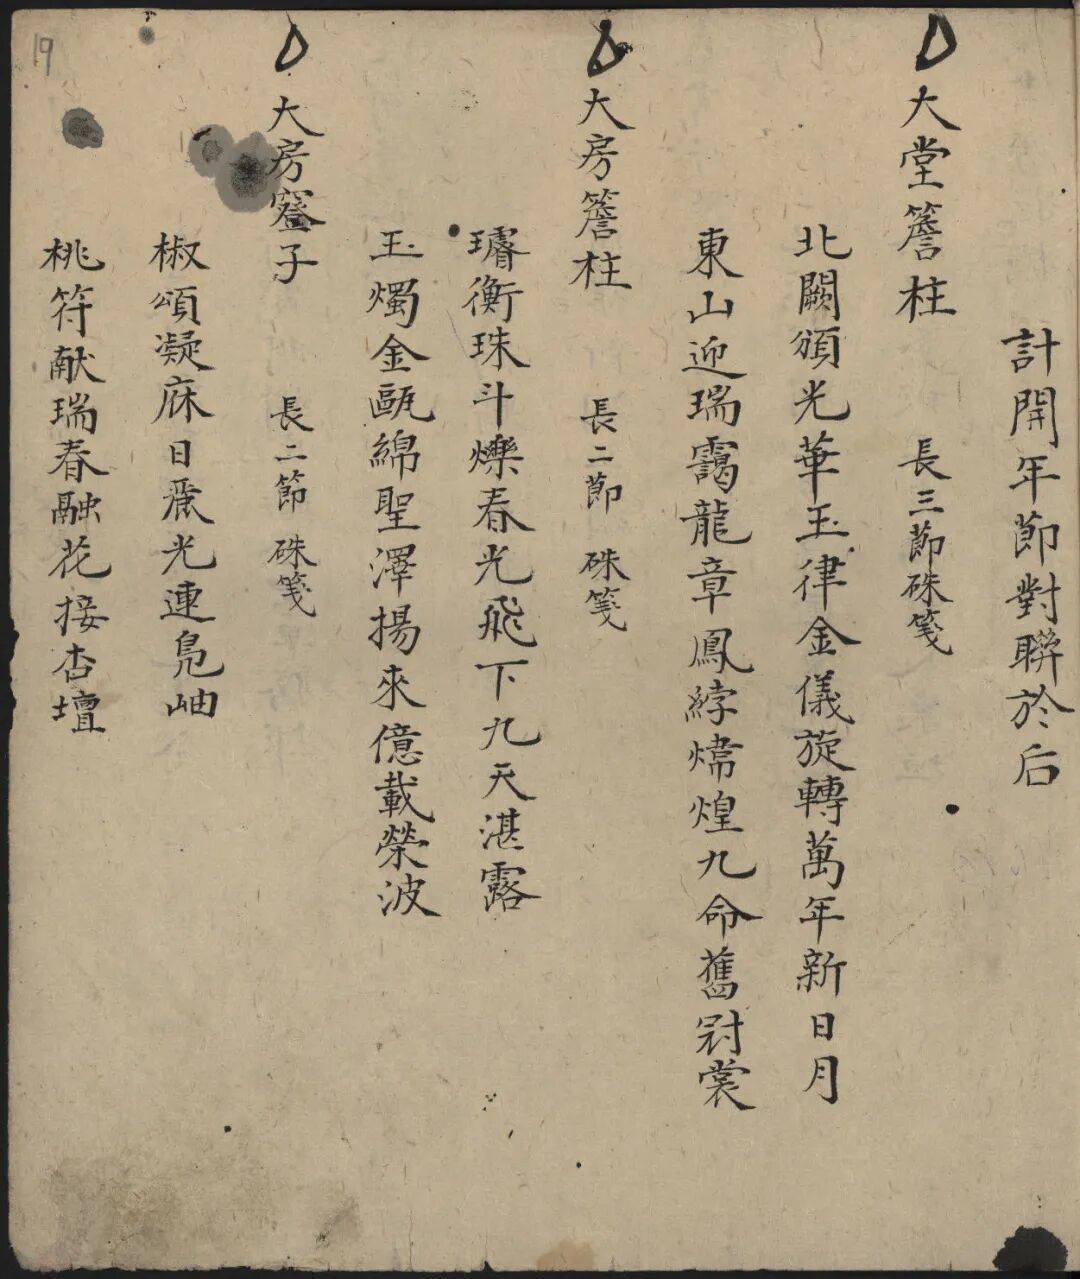 計開年節對聯於后
大堂簷柱 長三節硃箋
北闕頒光華玉律金儀旋轉萬年新日月
東山迎瑞靄龍章鳳綍煒煌九命舊冠裳
大房簷柱 長二節 硃箋
璿衡珠斗爍春光飛下九天湛露
玉燭金甌綿聖澤揚來億載榮波
大房窽子 長二節 硃箋
椒頌凝庥日烝光連鳬岫
桃符献瑞春融花接杏壇
19